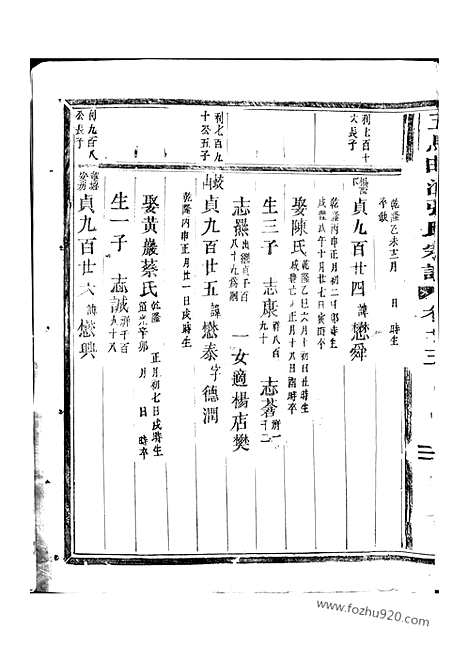 五馬曲池張氏宗譜 卷廿三
乾隆乙未十二月 日 時生
卒缺
利七百十
六長子
貞九百廿四 諱懋舜
乾隆丙申正月初二日卯時生
咸豐 年十月廿七日寅時卒
娶陳氏 乾隆乙巳六月十初日丑時生
正月十八日酉時卒
生三子 志康 祥八百
九十
志蒼 祥一
千二
志羆 出繼貞千百
八十九為嗣
一女適楊店樊
利七百九
十公五子
貞九百廿五 諱懋泰字德潤
乾隆丙申正月廿一日戌時生
娶黃巖蔡氏 乾隆 正月初七日戌時生
道光辛卯 月 日 時卒
生一子 志誠 祥千百
九十八
利九百八
公長子
貞九百廿六 諱懋興
www.fozhu920.com